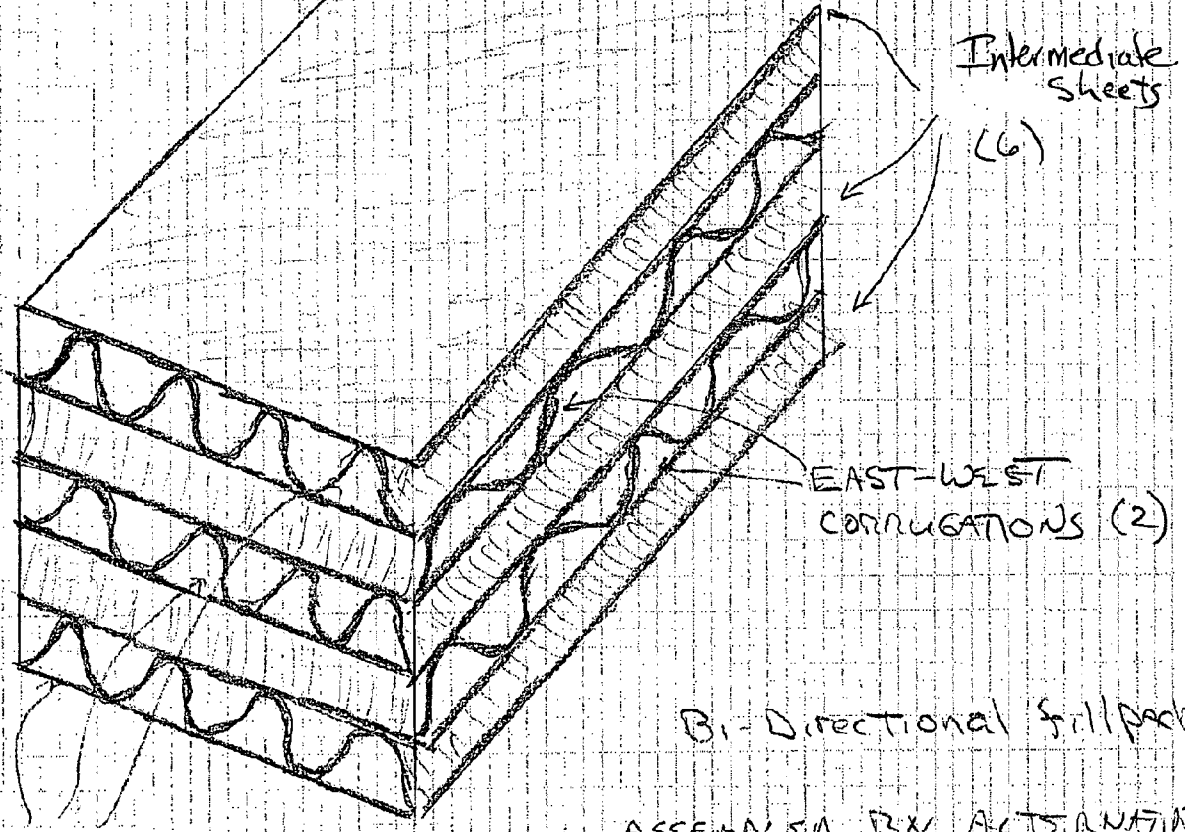 Intermediate
Sheets
(6)
EAST-WEST
CORRUGATIONS (2)
Bi-Directional fillpack
ASSEMBLED BY ALTERNATIN